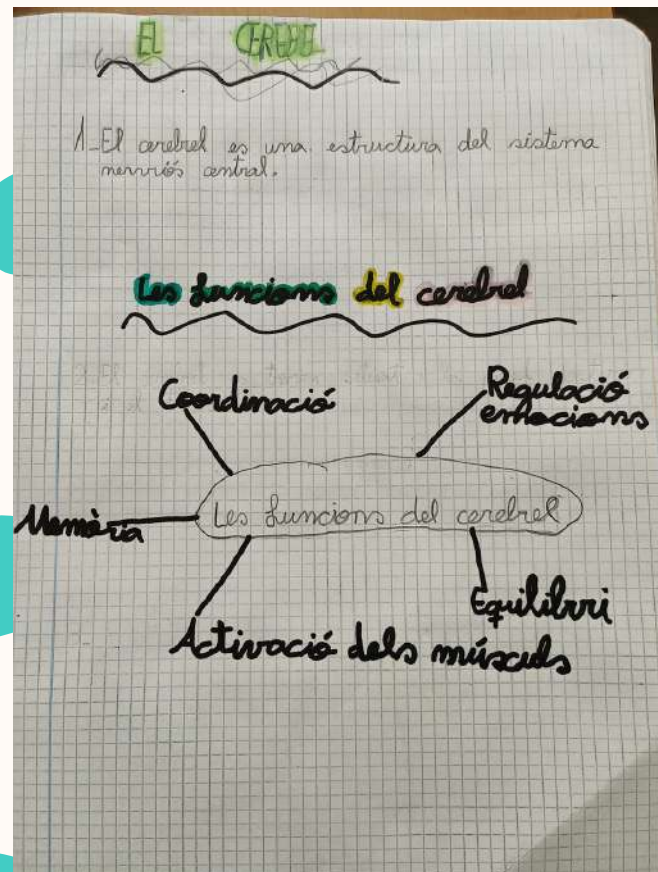 EL CEREBEL
1-El cerebel es una estructura del sistema
nerviós central.
Les funcions del cerebel
Coordinació
Regulació
emocions
Memòria
Les funcions del cerebel
Equilibri
Activació dels músculs